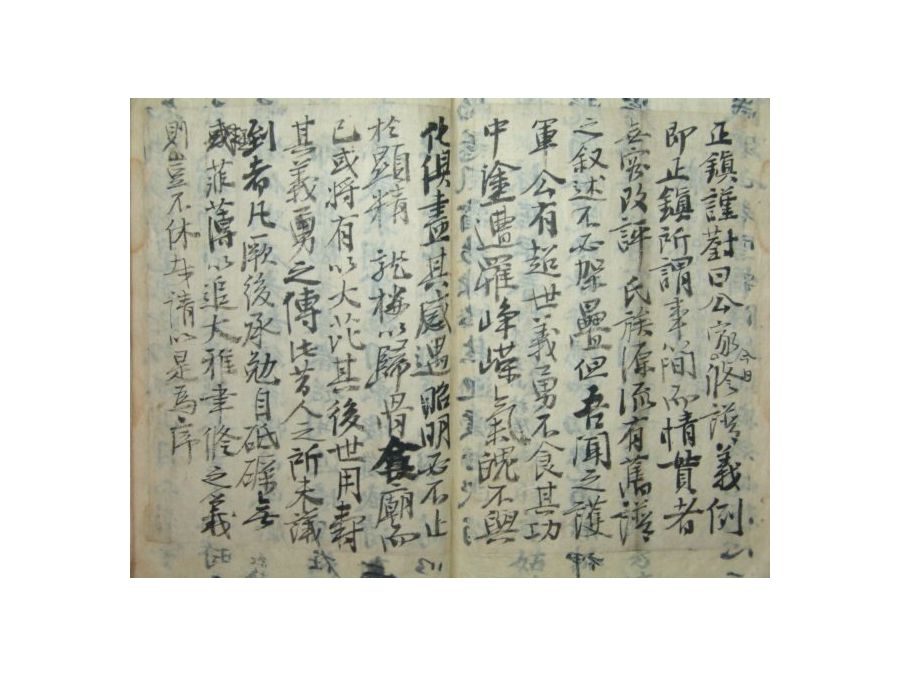 正鎭謹對曰公家今日修譜義例
即正鎭所謂事簡而情貫者
無容改評 氏族源流有舊譜
之叙述不必架疊但吾聞之護
軍公有超世義勇不食其功
中塗遭罹崢嶸氣魄不與
化俱盡其感遇昭明必不止
於顯精 以歸骨食廟而
已或將有以大芘其後世用壽
其義勇之傳此昔人之所未議
到者凡厥後承勉自砥礪無
或菲薄以追大雅聿修之義
則豈不休哉請以是爲序